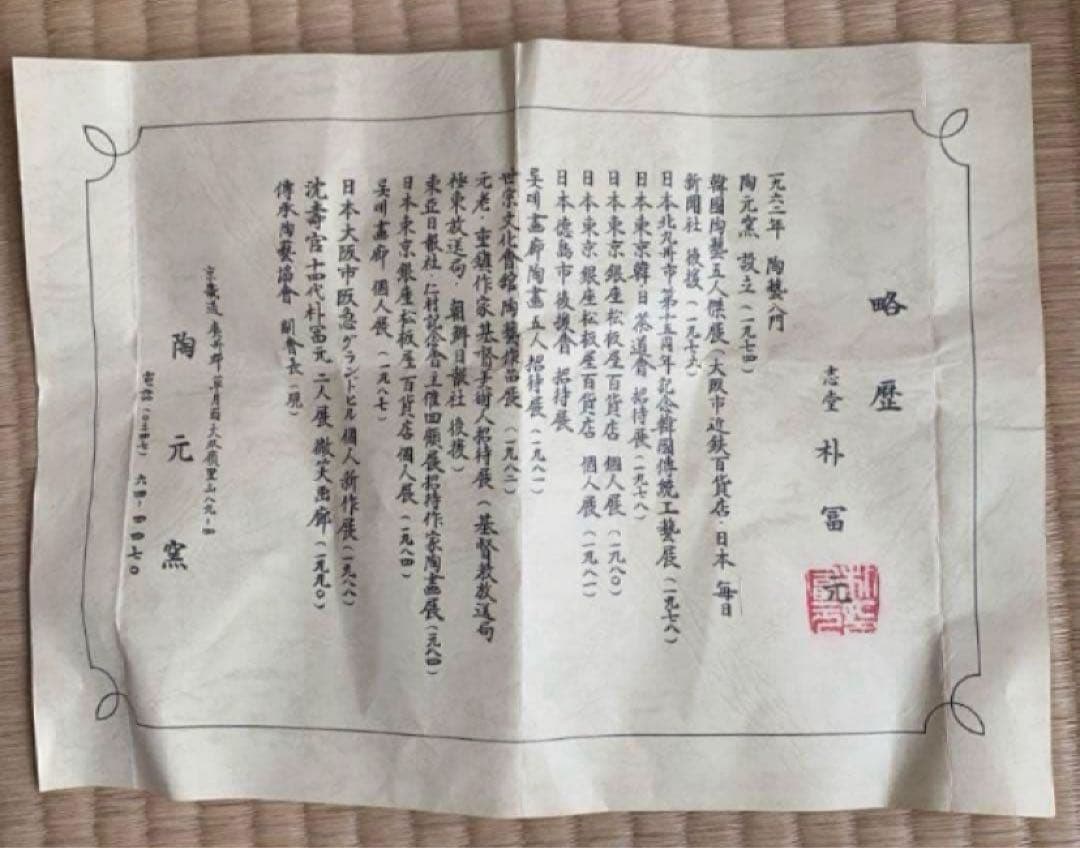 略歷
志堂 朴冨元
一九六二年 陶藝入門
陶元窯 設立(一九七四)
韓國陶藝五人傑展(大阪市近鉄百貨店·日本 每日
新聞社 後援(一九七六)
日本北九州市第十五周年記念韓國傳統工藝展(一九七八)
日本東京韓日茶道會 招待展(一九七八)
日本東京銀座松板屋百貨店 個人展(一九八०)
日本東京銀座松板屋百貨店 個人展(一九八一)
日本德島市後援會 招待展
吴明畵廊陶畵五人招待展(一九八一)
世宗文化會舘陶藝作品展(一九八二)
元老·重鎮作家基督夫婦人招待展(基督敎放送局
極東放送局·朝鮮日報社 後援)
東亞日報社 仁村記念會主催回顧展招待作家陶畵展(一九八四)
日本東京銀座松板屋百貨店個人展(一九八四)
吴明畵廊 個人展(一九八七)
日本大阪市阪急グランドヒル個人新作展(一九八八)
沈壽官十四代朴冨元 二人展 微笑画廊(一九九०)
傳承陶藝協會 副會長(現)
京畿道 廣州郡
陶元窯
電話 六四-四四七०